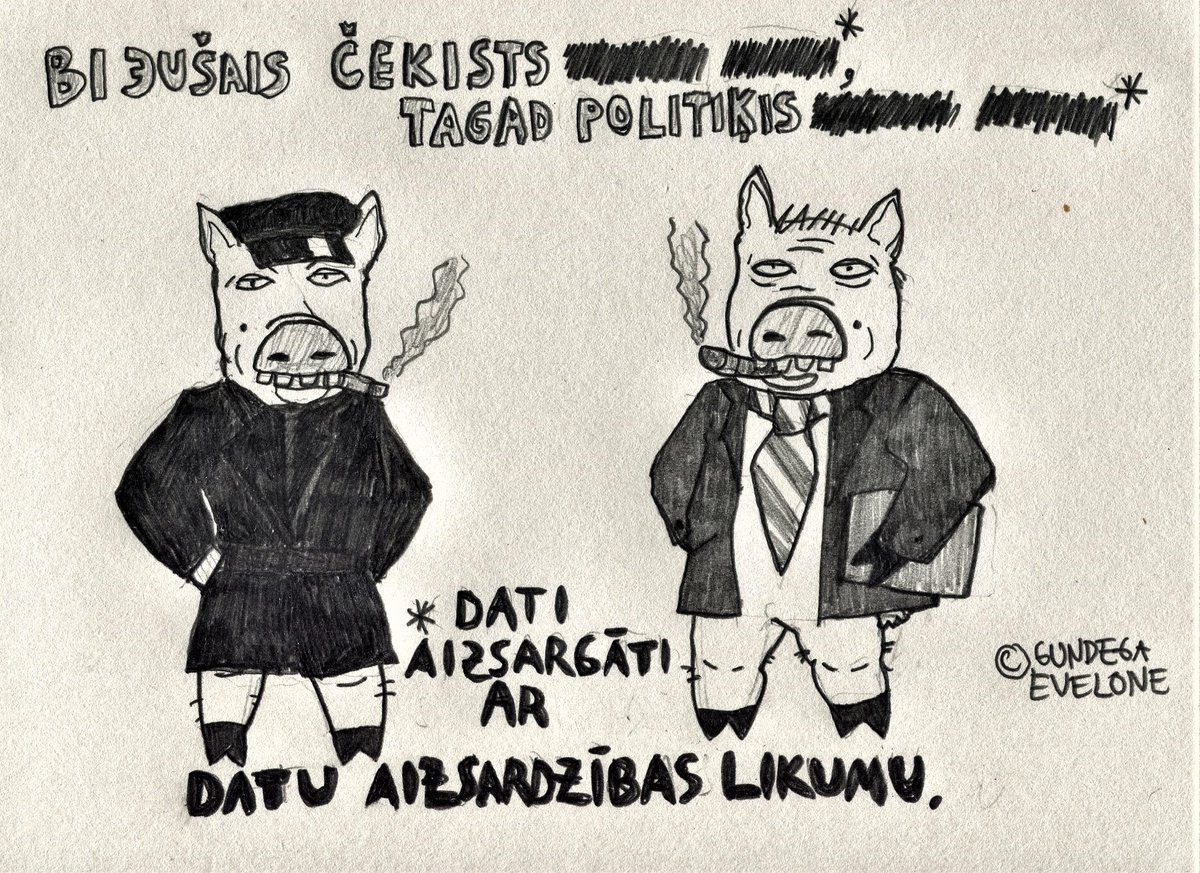 BIJUŠAIS ČEKISTS *,
TAGAD POLITIĶIS *
* DATI
AIZSARGĀTI
AR
DATU AIZSARDZĪBAS LIKUMU.
© GUNDEGA
EVELONE